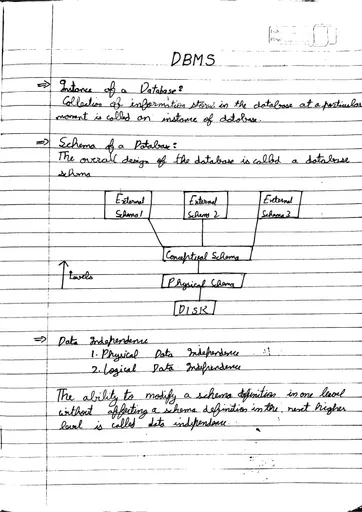 DBMS
⇒ Instance of a Database:
Collection of information stored in the database at a particular
moment is called an instance of database.
⇒ Schema of a Database:
The overall design of the database is called a database
schema
External External External
Schema 1 Schema 2 Schema 3
Conceptual Schema
↑ Levels
Physical Schema
DISK
⇒ Data Independence
1. Physical Data Independence
2. Logical Data Independence
The ability to modify a schema definition in one level
without affecting a schema definition in the next higher
level is called data independence.